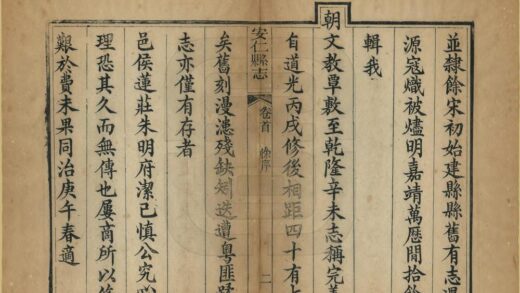 並隸餘宋初始建縣縣舊有志遇
源寇熾被燼明嘉靖萬歷閒拾餘
輯我
朝文教覃敷至乾隆辛未志稱完美
自道光丙戌修後相距四十有七
安仁縣志
卷首
徐序
二
矣舊刻漫漶殘缺矧迭遭粵匪蹂
志亦僅有存者
邑侯蓮莊朱明府潔己慎公究心
理恐其久而無傳也屢商所以修
艱於費未果同治庚午春適